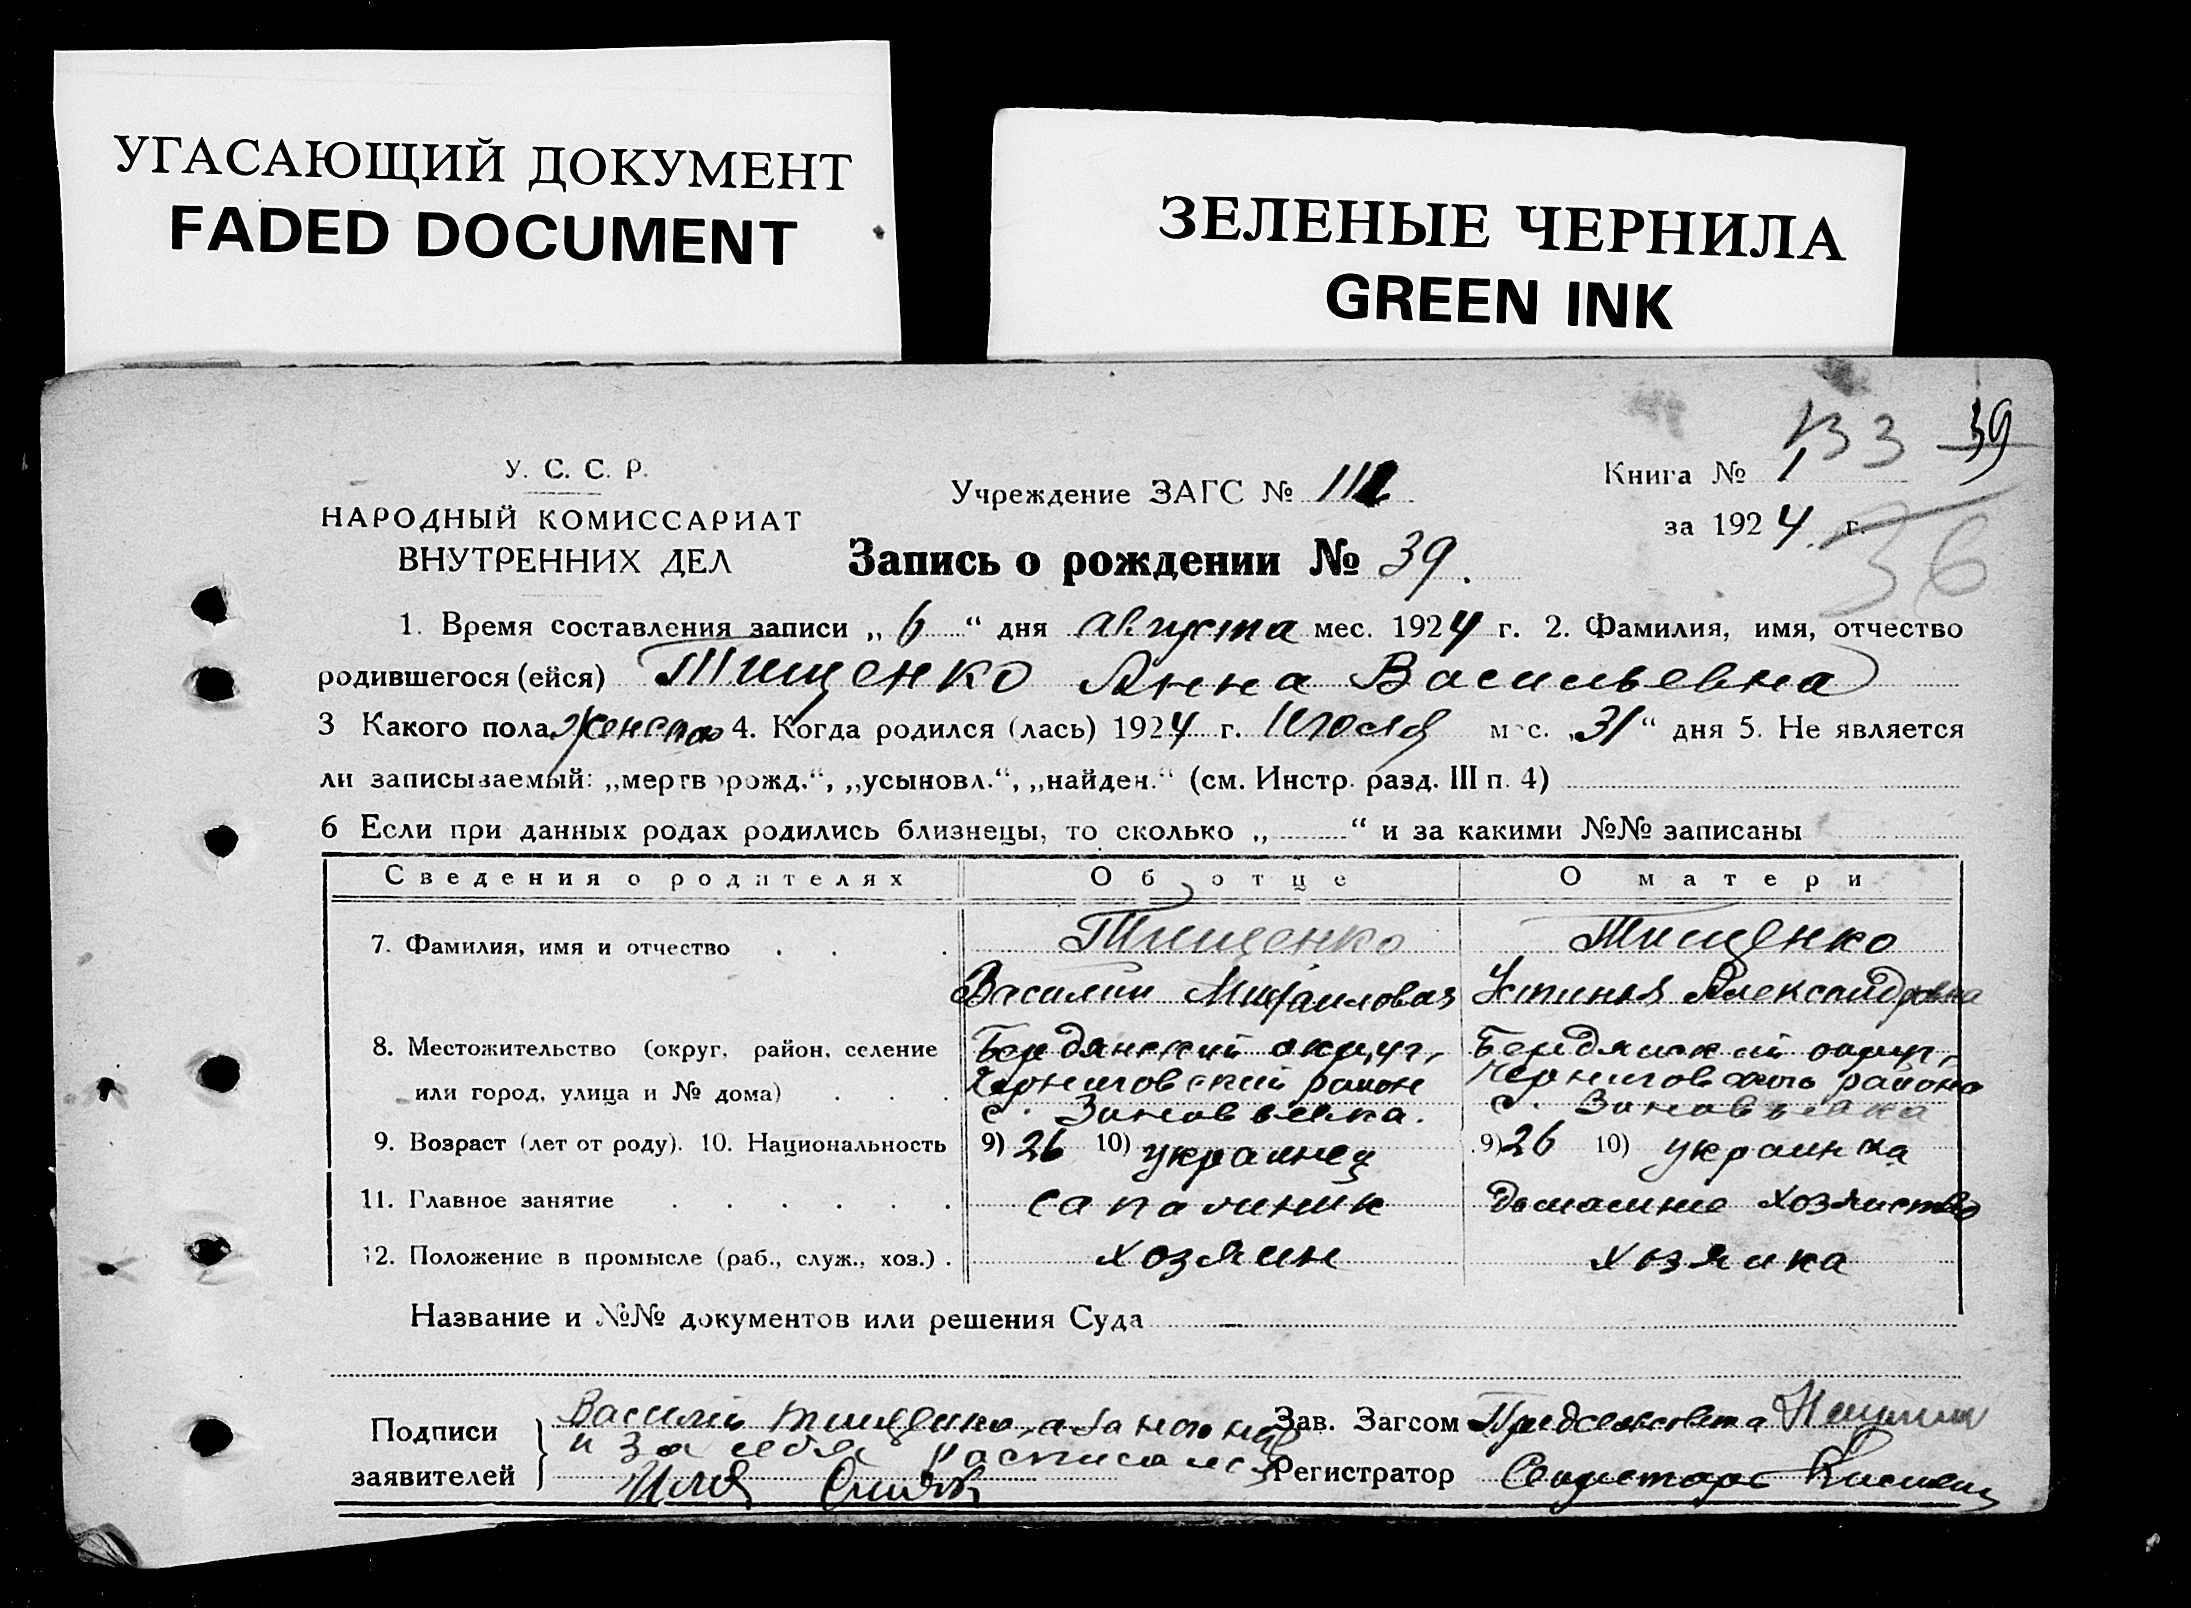 УГАСАЮЩИЙ ДОКУМЕНТ
FADED DOCUMENT
ЗЕЛЕНЫЕ ЧЕРНИЛА
GREEN INK
133 39
У. С. С. Р.
НАРОДНЫЙ КОМИССАРИАТ
ВНУТРЕННИХ ДЕЛ
Учреждение ЗАГС №
Книга № 1
за 1924 г.
36
Запись о рождении № 39.
1. Время составления записи „6“ дня августа мес. 1924 г. 2. Фамилия, имя, отчество
родившегося (ейся) Тищенко Анна Васильевна
3 Какого пола 4. Когда родился (лась) 1924 г. Июля мес. „31“ дня 5. Не является
ли записываемый: „мертворожд.“, „усыновл.“, „найден.“ (см. Инстр. разд. III п. 4)
6 Если при данных родах родились близнецы, то сколько „ “ и за какими №№ записаны
Сведения о родителях Об отце О матери
7. Фамилия, имя и отчество Тищенко Тищенко
Василий Михайлович Устинья Александровна
8. Местожительство (округ, район, селение Бердянский округ, Бердянский округ,
или город, улица и № дома) Черниговский район Черниговского района
с. с.
9. Возраст (лет от роду). 10. Национальность 9) 26 10) украинец 9) 26 10) украинка
11. Главное занятие сапожник домашнее хозяйство
12. Положение в промысле (раб., служ., хоз.) хозяин хозяйка
Название и №№ документов или решения Суда —
Подписи заявителей Василий Тищенко
и за себя расписался
Илья
Зав. Загсом Предсельсовета
Регистратор Секретарь